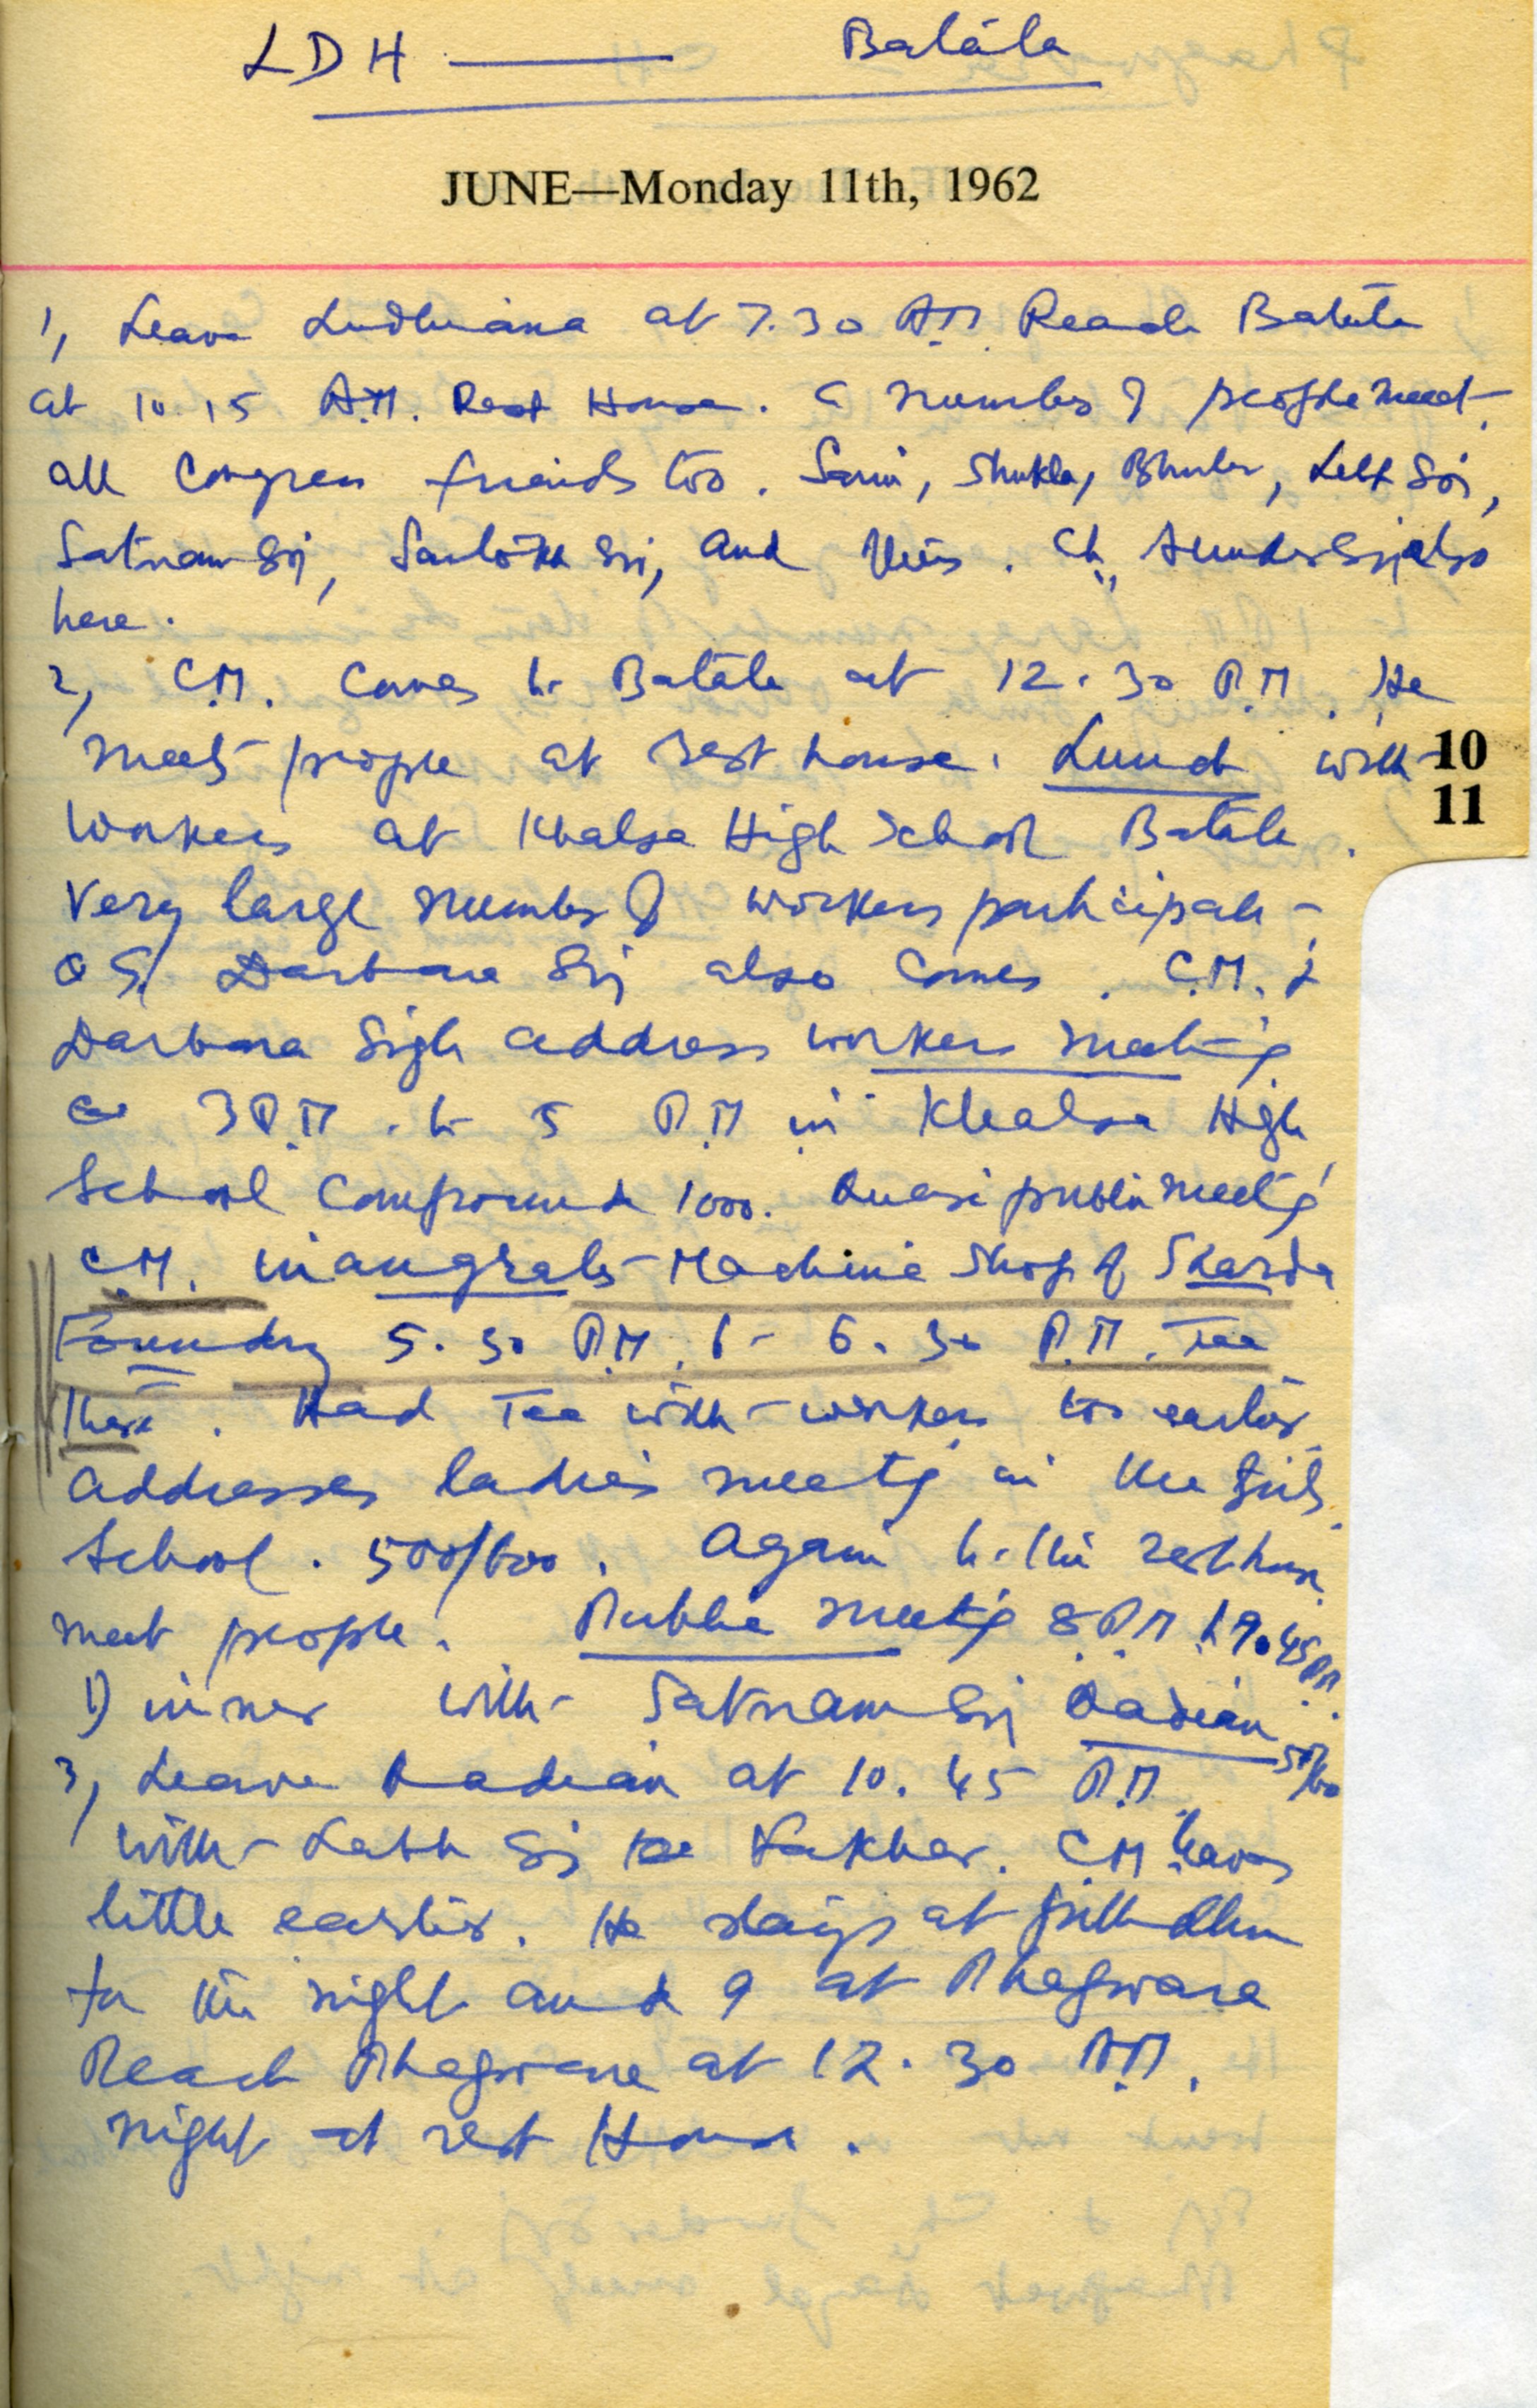 LDH — Batala
JUNE—Monday 11th, 1962
1, Leave Ludhiana at 7.30 A.M. Reach Batala
at 10.15 A.M. Rest House. a number of people meet
all Congress friends too. Saini, Shukla, Bhuler,
Satnam Sij, Santokh Sij, and Ch. Sunder Sij also
here.
2, C.M. Comes to Batala at 12.30 P.M. He
meets people at rest house. Lunch with
10
workers at Khalsa High School Batala.
11
Very large number of workers participate
Darbara Sij also comes. C.M. &
Darbara Sigh address workers meeting
3 P.M. to 5 P.M in Khalsa High
School Compound 1000. Quasi public meetig
C.M. inaugrates Machine Shop of Sharda
Foundry 5.30 P.M. to 6.30 P.M. Tea
there. Had Tea with workers too earlier
addresses ladies meetig in the Girls
School. 500/600. Again to the rest house
meet people. Public meetig 8 P.M to 9.45 P.M.
Dinner with Satnam Sij Qadian 50/60
3, Leave Kadian at 10.45 P.M.
with Labh Sij Fakhar. C.M leaves
little earlier. He stays at Jullundhur
for the night and I at Phagwara
Reach Phagwara at 12.30 A.M.
night at rest House.